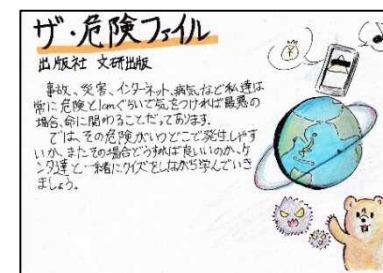 ザ・危険ファイル
出版社 文研出版
事故、災害、インターネット、病気など私達は
常に危険と1cmぐらいで気をつければ最悪の
場合、命に関わることだってあります。
では、その危険がいつどこで発生しやす
いか、またその場合どうすれば良いのか、ケ
ンタ達と一緒にクイズをしながら学んでいき
ましょう。